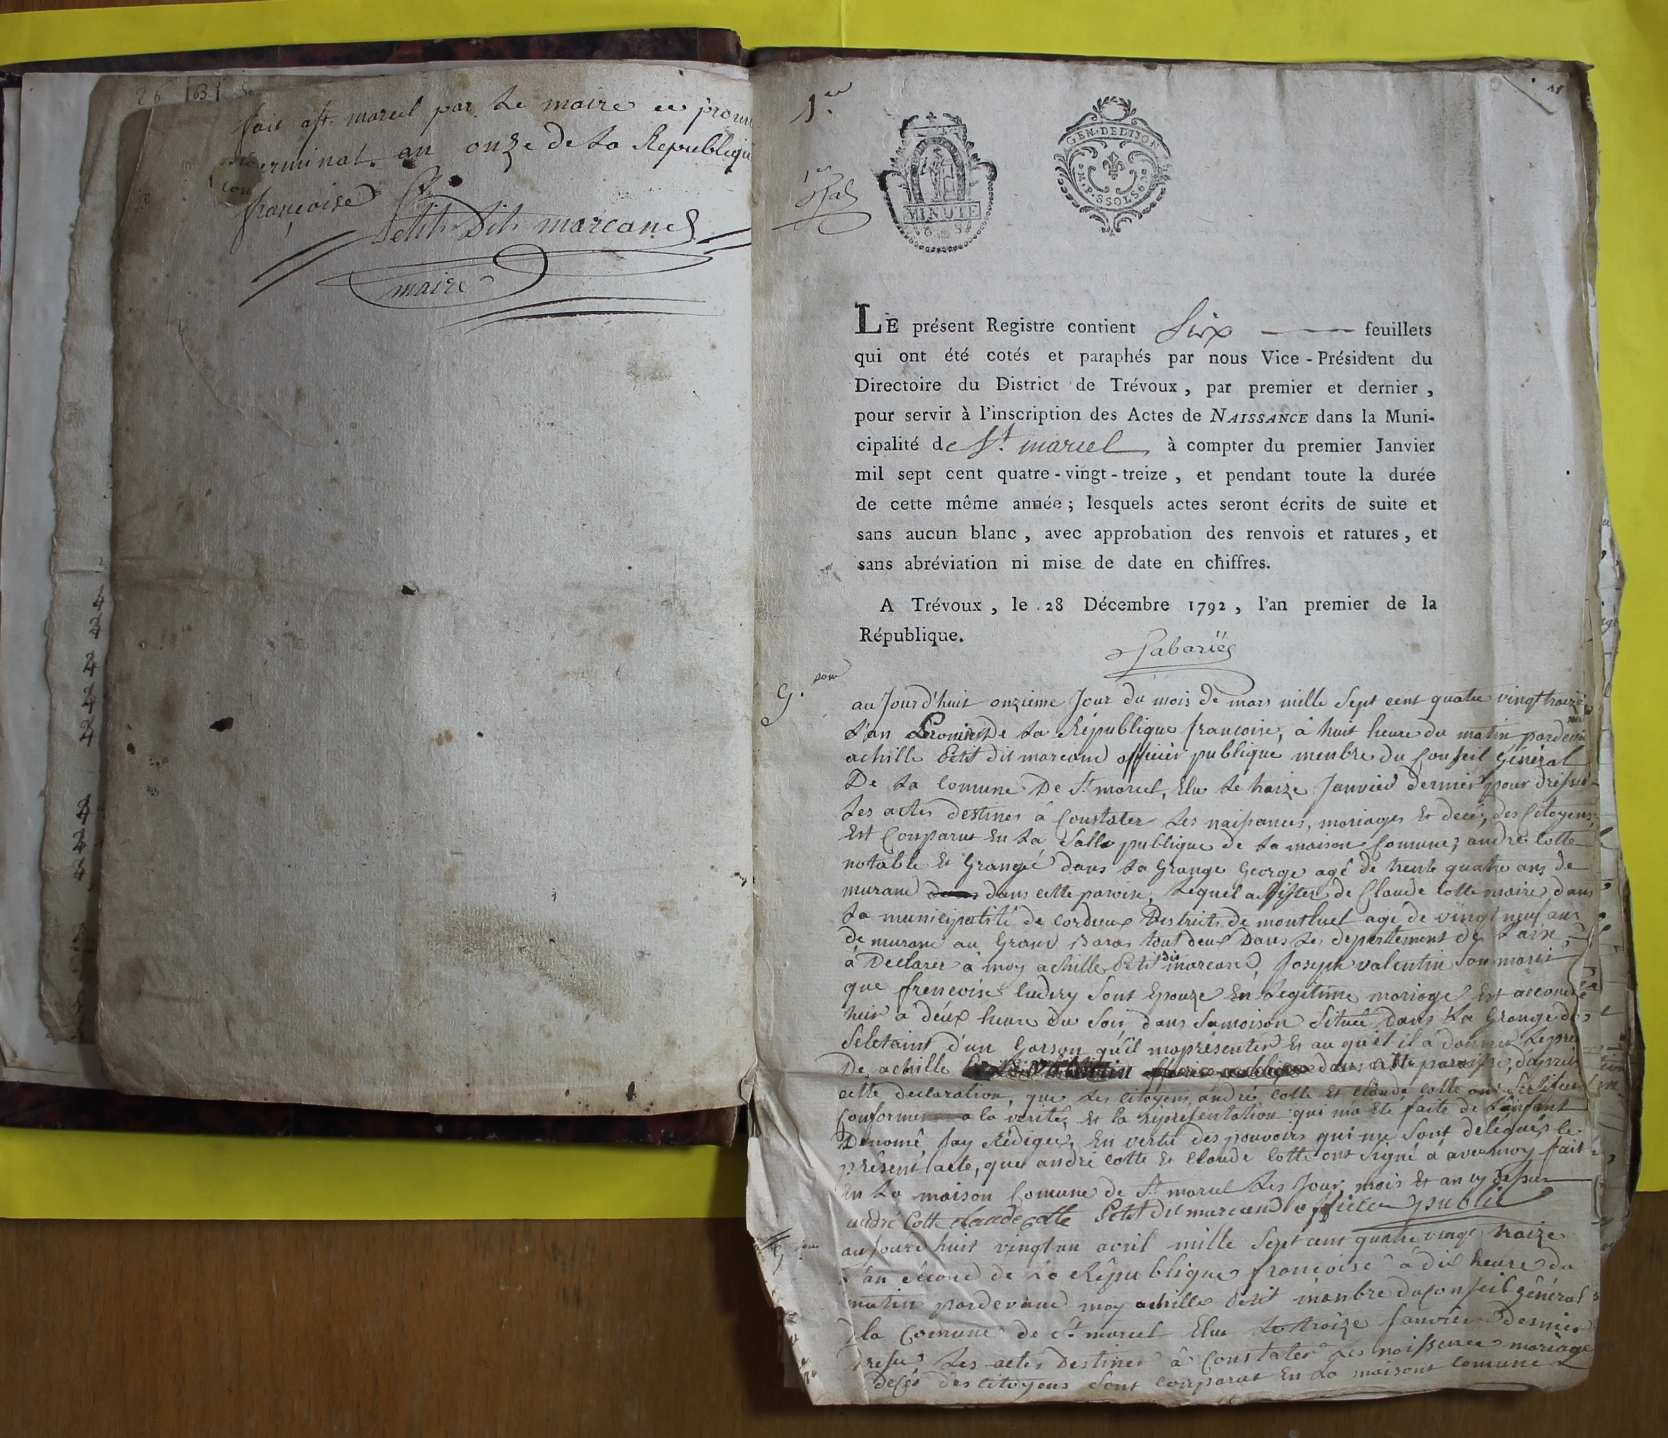 fait a St. marcel par Le maire
germinal an onze de La Republique
françoise
Petit Dit marcand
maire
1.er
GEN. DE DIJON
MINUTE
LE présent Registre contient Six feuillets
qui ont été cotés et paraphés par nous Vice-Président du
Directoire du District de Trévoux, par premier et dernier,
pour servir à l'inscription des Actes de NAISSANCE dans la Muni-
cipalité de St. marcel à compter du premier Janvier
mil sept cent quatre-vingt-treize, et pendant toute la durée
de cette même année; lesquels actes seront écrits de suite et
sans aucun blanc, avec approbation des renvois et ratures, et
sans abréviation ni mise de date en chiffres.
A Trévoux, le 28 Décembre 1792, l'an premier de la
République.
auJourd'huit onzieme Jour du mois de mars mille Sept cent quatre vingt traize
L'an Premier De La République francoise, à huit heure du matin pardevan
achille Petit dit marcand officier publique menbre du Conseil Général
De La Comune De St. marcel, Elu Le traize Janvier dernier pour
Les actes destines à Constater Les naissances, mariages Et decés des Citoyens,
Est Comparut En La Salle publique de La maison Comune, andré Cotte
notable Et Grangé dans La Grange George agé de trente quatre ans de
murant dans cette paroise, Lequel de Claude Cotte maire dans
La municipalité de Cordieux Destrict de montluel agé de vingt neuf ans
de murant au Grand tout deux Dans Les departement de L'ain,
à Declarer à moy achille Petit dit marcand, Joseph valentin
que frencoise Sont Epouze En Legitime mariage Est acouche
hier à deux heure du Soir, dans Samoison Située dans La Grange de
d'un Garson qu'il ma présenter Et au quel il à donner
De achille dans cette paroisse,
cette declaration, que Les citoyens, andré Cotte Et Claude Cotte
Conforme a la verité, Et la représentation qui ma Eté faite de L'anfant
Denomé Jay Rédigée, En vertu des pouvoirs qui me Sont délégués le
présent acte, que andré Cotte Et Claude Cotte ont Signé à avec moy fait
En La maison Comune de St. marcel Les Jour, mois Et an cy dessus
andré Cotte claude cotte Petit dit marcand officier public
auJourd'huit vingt un avril mille Sept cent quatre vingt traize
L'an Second de La République françoise à dix heure du
matin pardevand moy achille Petit menbre du Conseil général
la Comune de St. marcel Elu Le traize Janvier Dernier
Les actes Destines à Constater Les naissence mariage
Decés Des Citoyens Sont comparut En La maison Comune